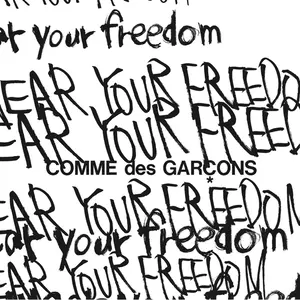 EAR YOUR FREEDOM
ar your freedom
EAR YOUR FREEDO
EAR YOUR FREE
COMME des GARÇONS
EAR YOUR FREEDOM
ar your freedom
EAR YOUR FREEDOM